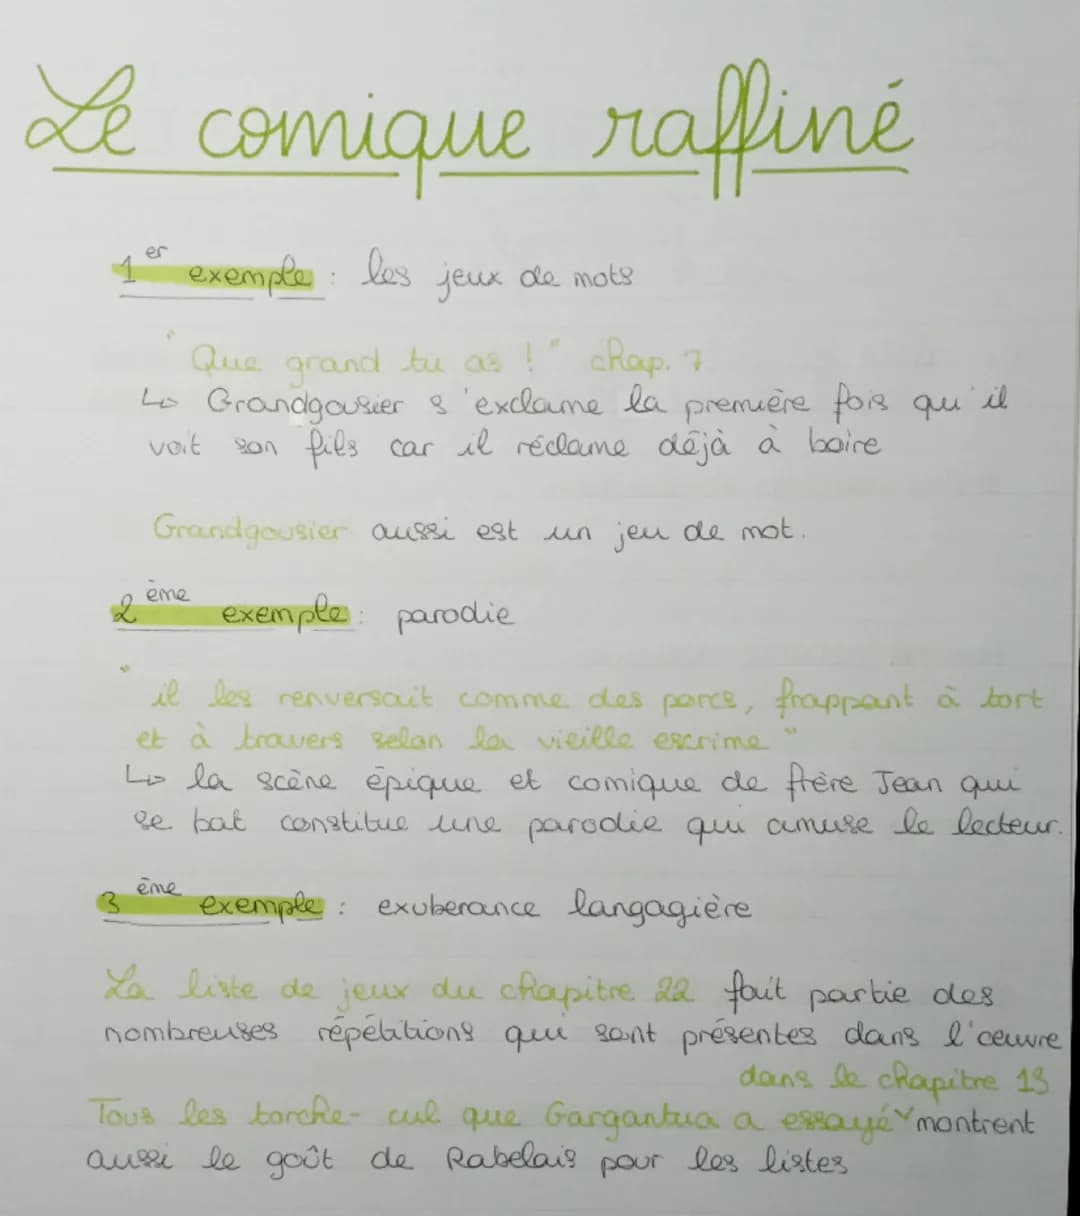 Le comique raffiné
1er exemple : les jeux de mots
"Que grand tu as !" chap. 7
↳ Grandgousier s'exclame la première fois qu'il
voit son fils car il réclame déjà à boire
Grandgousier aussi est un jeu de mot.
2ème exemple : parodie
"il les renversait comme des porcs, frappant à tort
et à travers selon la vieille escrime"
↳ la scène épique et comique de frère Jean qui
se bat constitue une parodie qui amuse le lecteur.
3ème exemple : exubérance langagière
La liste de jeux du chapitre 22 fait partie des
nombreuses répétitions qui sont présentes dans l'œuvre
dans le chapitre 13
Tous les torche-cul que Gargantua a essayé montrent
aussi le goût de Rabelais pour les listes